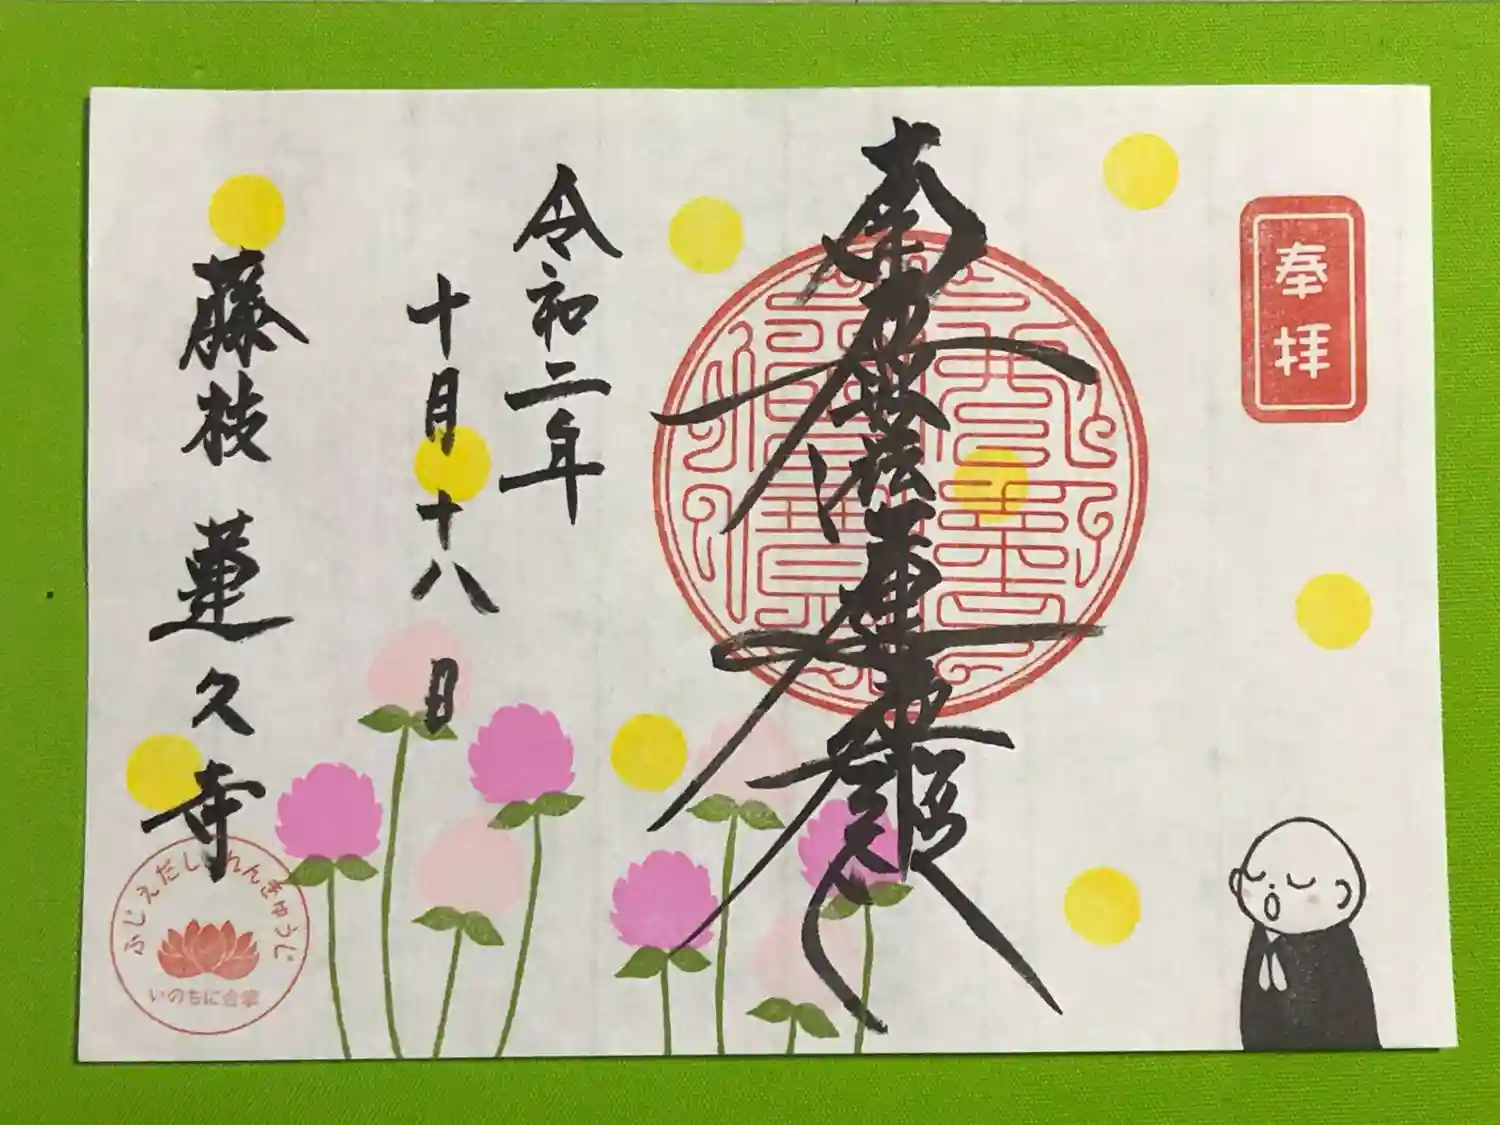 奉拝
南無妙法蓮華経
令和二年
十月十八日
藤枝 蓮久寺
ふじえだし れんきゅうじ
いのちに合掌